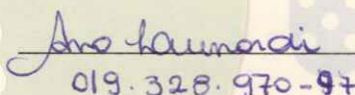 Ana Launardi
019.328.970-97